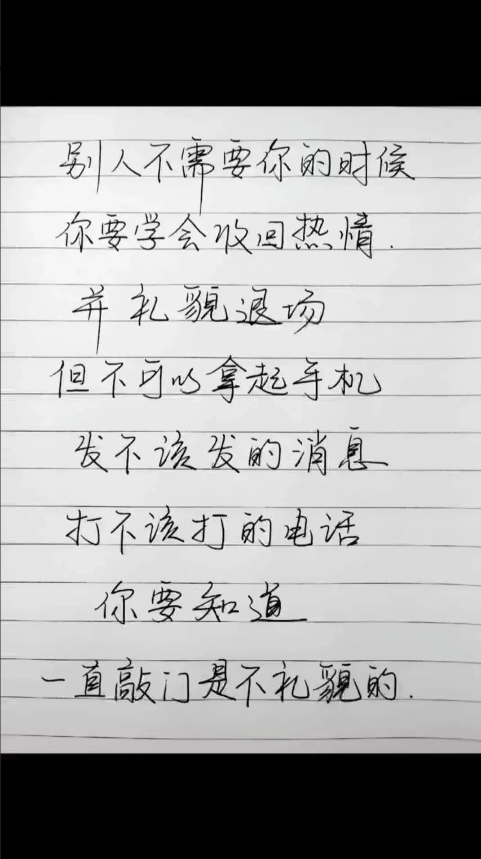 别人不需要你的时候
你要学会收回热情.
并礼貌退场
但不可以拿起手机
发不该发的消息
打不该打的电话
你要知道
一直敲门是不礼貌的.